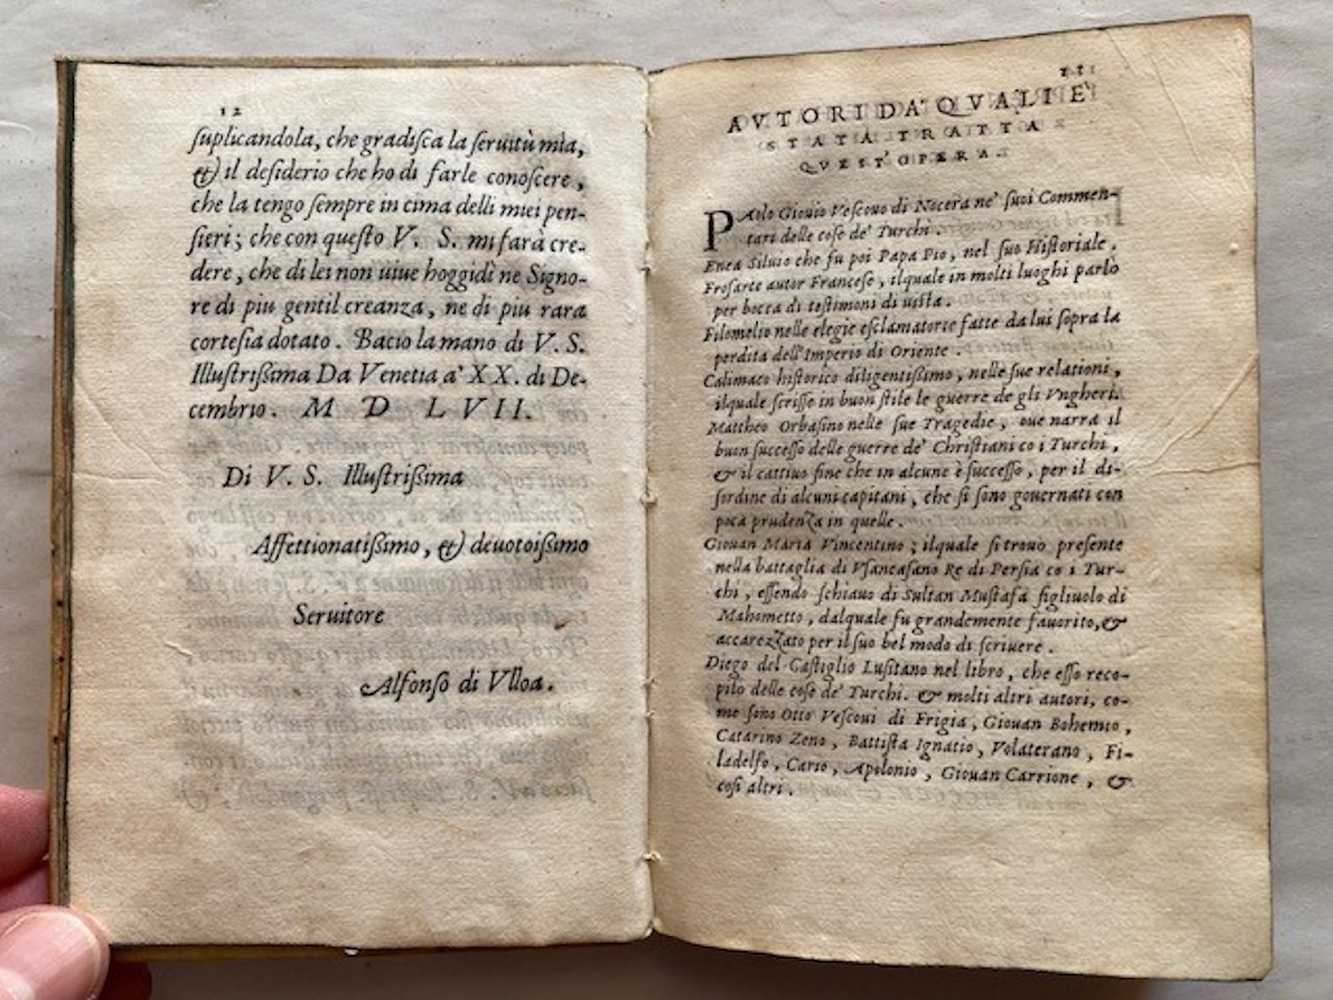 12
ſuplicandola, che gradiſca la ſeruitù mia,
& il deſiderio che ho di farle conoſcere,
che la tengo ſempre in cima delli miei pen-
ſieri; che con queſto V. S. mi farà cre-
dere, che di lei non uiue hoggidì ne Signo-
re di piu gentil creanza, ne di piu rara
corteſia dotato. Bacio la mano di V. S.
Illuſtriſsima Da Venetia a' XX. di De-
cembrio. M D LVII.
Di V. S. Illuſtriſsima
Affettionatiſsimo, & deuotoiſsimo
Seruitore
Alfonſo di Vlloa.
AVTORI DA' QVALI È
STATA TRATTA
QVEST'OPERA.
PAolo Giouio Veſcouo di Nocera ne' ſuoi Commen-
tari delle coſe de' Turchi.
Enea Siluio che fu poi Papa Pio, nel ſuo Hiſtoriale.
Froſarte autor Franceſe, ilquale in molti luoghi parlò
per bocca di teſtimoni di uiſta.
Filomelio nelle elegie eſclamatorte fatte da lui ſopra la
perdita dell'Imperio di Oriente.
Calimaco hiſtorico diligentiſsimo, nelle ſue relationi,
ilquale ſcriſſe in buon ſtile le guerre de gli Vngheri.
Mattheo Orbaſino nelle ſue Tragedie, oue narra il
buon ſucceſſo delle guerre de' Chriſtiani co i Turchi,
& il cattiuo fine che in alcune è ſucceſſo, per il di-
ſordine di alcuni capitani, che ſi ſono gouernati con
poca prudenza in quelle.
Giouan Maria Vincentino; ilquale ſi trouò preſente
nella battaglia di Vſancaſano Re di Perſia co i Tur-
chi, eſſendo ſchiauo di Sultan Muſtafà figliuolo di
Mahometto, dalquale fu grandemente fauorito, &
accarezzato per il ſuo bel modo di ſcriuere.
Diego del Caſtiglio Luſitano nel libro, che eſſo reco-
pilo delle coſe de' Turchi. & molti altri autori, co-
me ſono Otto Veſcoui di Frigia, Giouan Bohemio,
Catarino Zeno, Battiſta Ignatio, Volaterano, Fi-
ladelfo, Cario, Apolonio, Giouan Carrione, &
coſi altri.